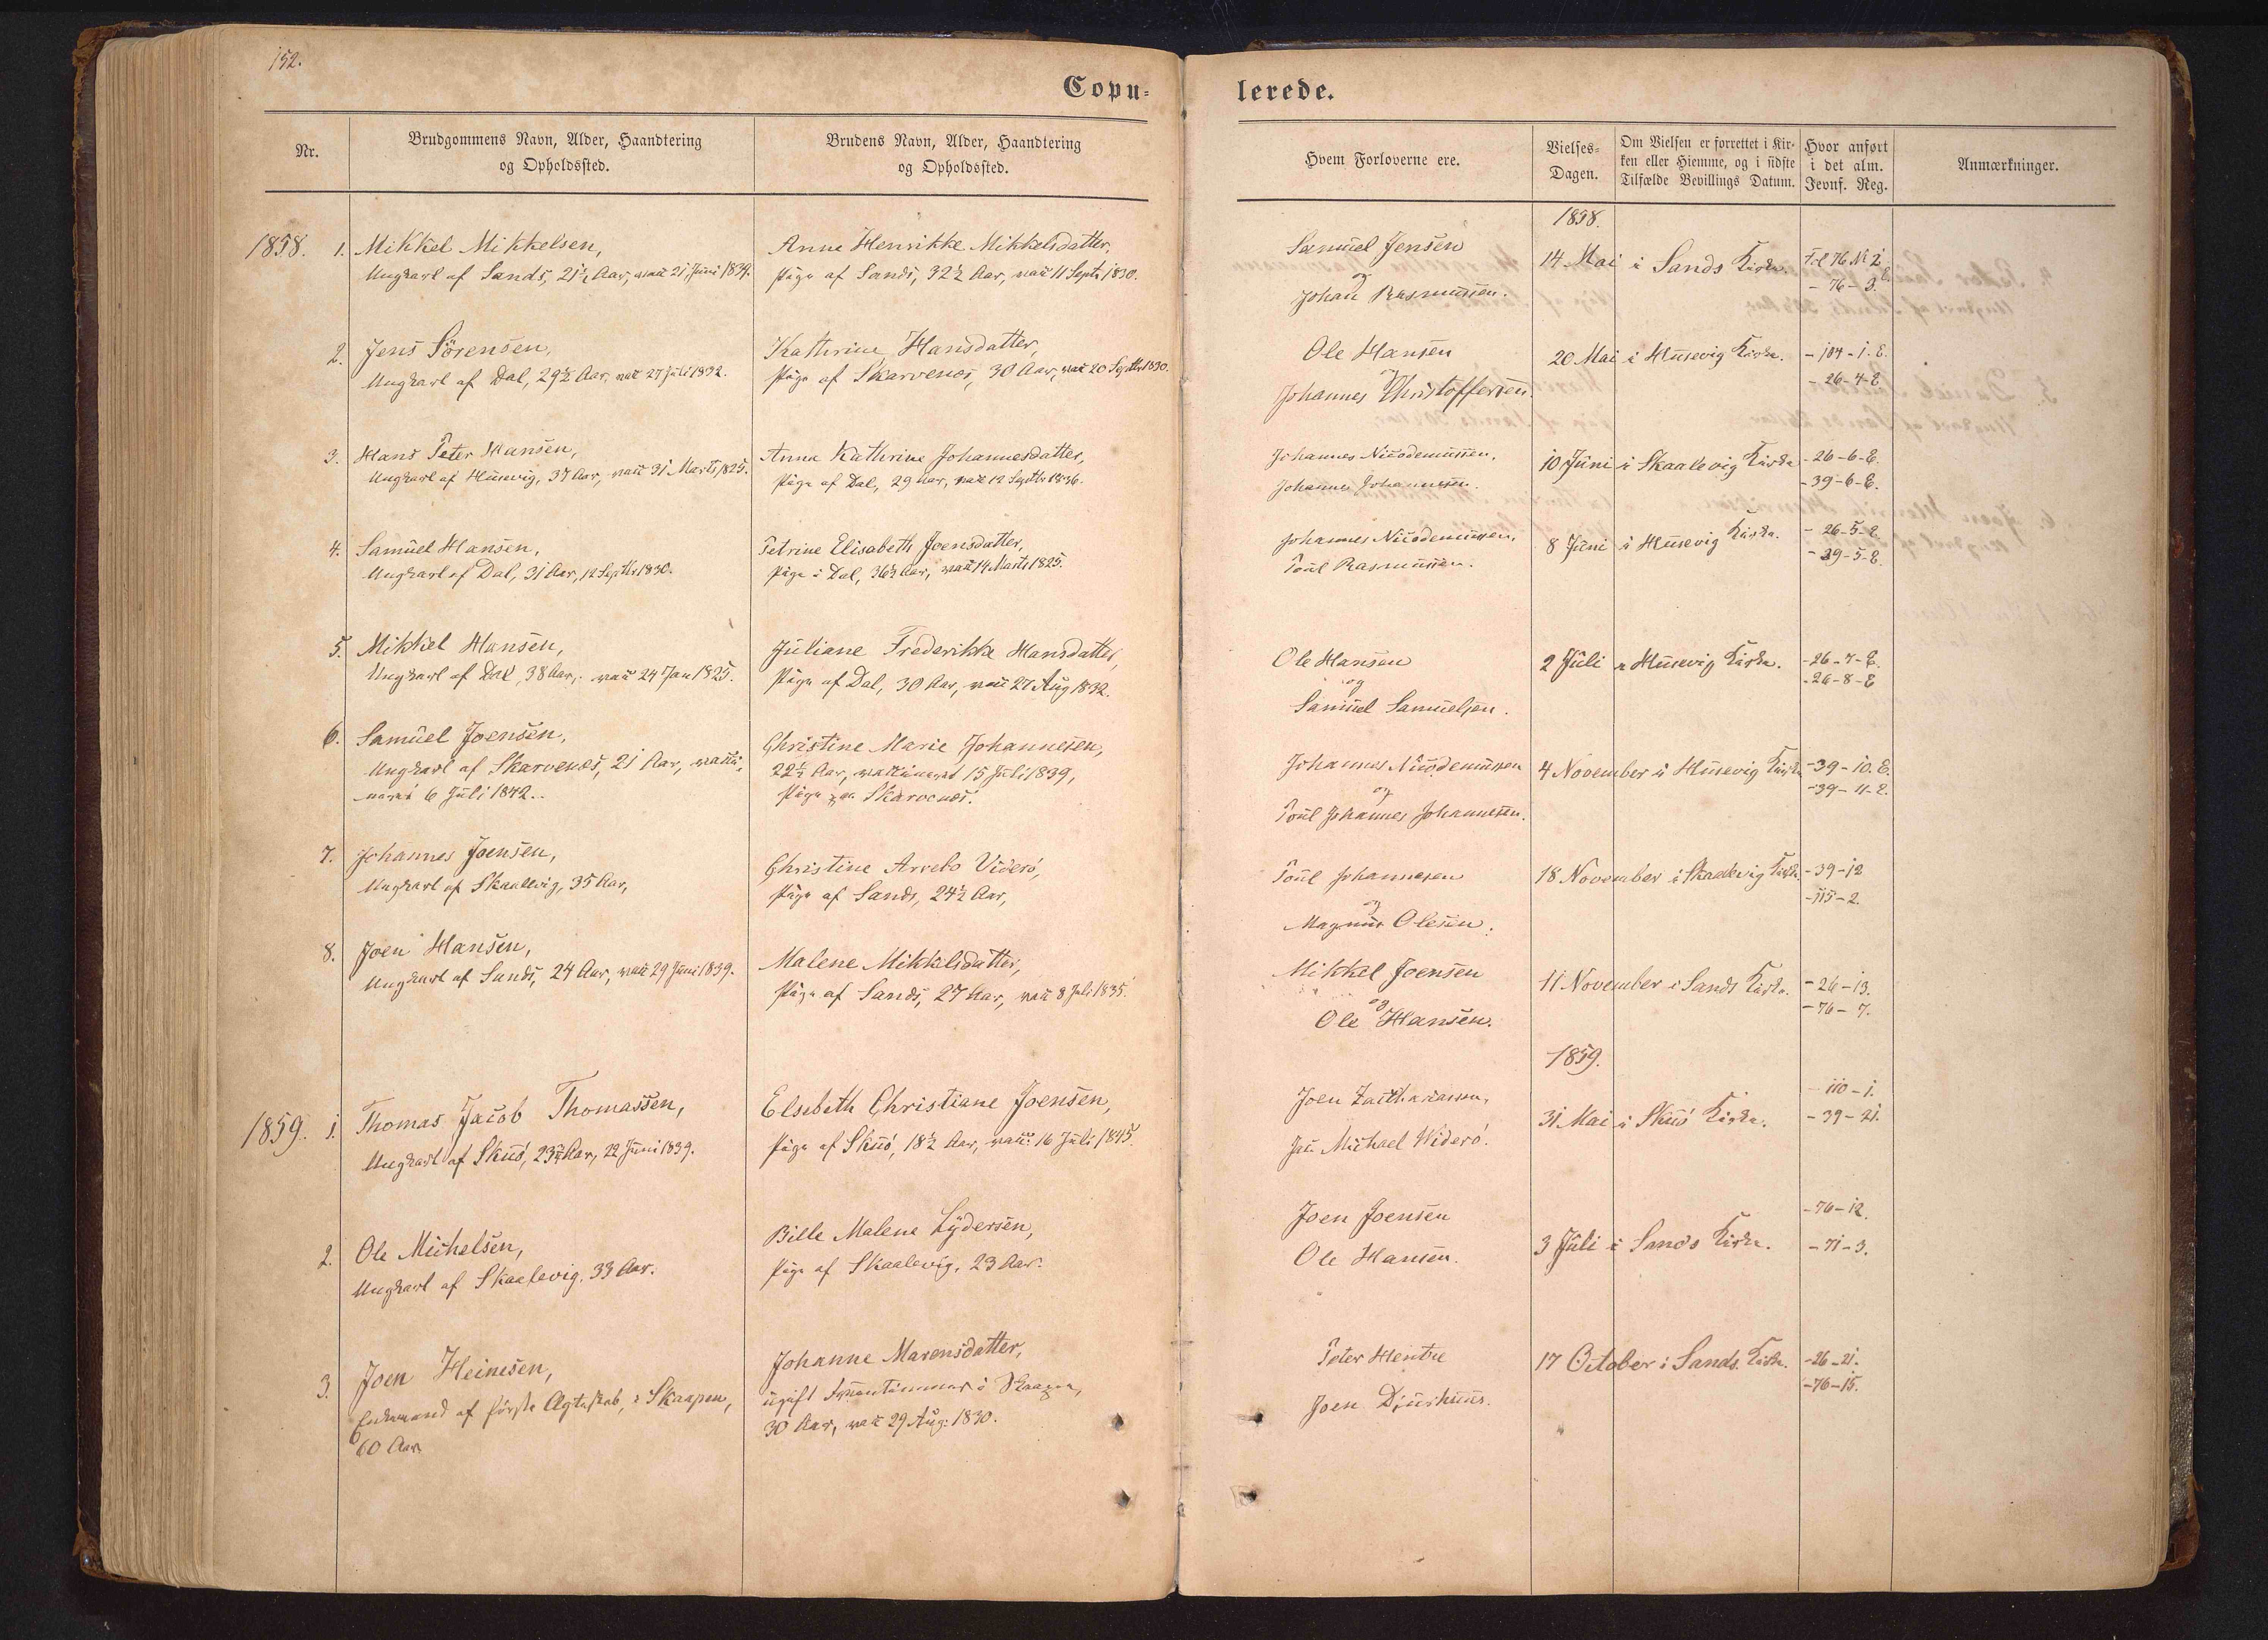 152.
Copu-
lerede.
Nr.
Brudgommens Navn, Alder, Haandtering
og Opholdssted.
Brudens Navn, Alder, Haandtering
og Opholdssted.
Hvem Forloverne ere.
Vielses-
Dagen.
Om Vielsen er forrettet i Kir-
ken eller Hiemme, og i sidste
Tilfælde Bevillings Datum.
Hvor anført
i det alm.
Jevnf. Reg.
Anmærkninger.
1858.
1858. 1. Mikkel Mikkelsen,
Ungkarl af Sands, 21½ Aar, vacc 21 Juni 1839.
Anna Henrikke Mikkelsdatter,
Pige af Sands, 32½ Aar, vacc 11 Septr 1830.
Samuel Jensen
og
Johan Rasmussen.
14 Mai i Sands Kirke.
Fol 76 N 2
- 76 - 3. E.
2. Jens Sörensen,
Ungkarl af Dal, 29½ Aar, vacc 27 Juli 1832.
Kathrine Hansdatter,
Pige af Skarvenes, 30 Aar, vacc 20 Septbr 1830.
Ole Hansen
og
Johannes Christoffersen.
20 Mai i Husevig Kirke.
- 104 - 1. E.
- 26 - 4 - E
3. Hans Peter Hansen,
Ungkarl af Husevig, 37 Aar, vacc 31 Marts 1825.
Anna Kathrine Johannesdatter,
Pige af Dal, 29 Aar, vacc 12 Septbr 1836.
Johannes Nicodemussen.
Johannes Johannesen.
10 Juni i Skaalevig Kirke
- 26 - 6 - E.
- 39 - 6 - E.
4. Samuel Hansen,
Ungkarl af Dal, 31 Aar, 12 Septbr 1830.
Petrine Elisabeth Joensdatter,
Pige i Dal, 36½ Aar, vacc 14 Marts 1825.
Johannes Nicodemussen.
Poul Rasmussen.
8 Juni i Husevig Kirke.
- 26 - 5 - E.
- 39 - 5 - E.
5. Mikkel Hansen,
Ungkarl af Dal, 38 Aar, vacc 24 Jan 1825.
Juliane Frederikke Hansdatter,
Pige af Dal, 30 Aar, vacc 27 Aug 1832.
Ole Hansen
og
Samuel Samuelsen.
2 Juli i Husevig Kirke.
- 26 - 7 - E.
- 26 - 8 - E
6. Samuel Joensen,
Ungkarl af Skarvenes, 21 Aar, vacci-
neret 6 Juli 1842.
Christine Marie Johannesen,
22½ Aar, vaccineret 15 Juli 1839,
Pige paa Skarvenes.
Johannes Nicodemussen
og
Poul Johannes Johannesen.
4 November i Husevig Kirke
- 39 - 10. E.
- 39 - 11 - E.
7. Johannes Joensen,
Ungkarl af Skaalevig, 35 Aar,
Christine Arrebo Viderö,
Pige af Sands, 24½ Aar,
Poul Johannesen
og
Magnus Olesen.
18 November i Skaalevig Kirke.
- 39 - 12
- 115 - 2.
8. Joen Hansen,
Ungkarl af Sands, 24 Aar, vacc 29 Juni 1839.
Malene Mikkelsdatter,
Pige af Sands, 27 Aar, vacc 8 Juli 1835.
Mikkel Joensen
og
Ole Hansen.
11 November i Sands Kirke.
- 26 - 13.
- 76 - 7.
1859.
1859. 1. Thomas Jacob Thomassen,
Ungkarl af Skuö, 23¾ Aar, 22 Juni 1839.
Elsebeth Christiane Joensen,
Pige af Skuö, 18½ Aar, vacc. 16 Juli 1845.
Joen Zacchariassen,
Jac. Michael Widerö.
31 Mai i Skuö Kirke.
- 110 - 1.
- 39 - 21.
2. Ole Michelsen,
Ungkarl af Skaalevig, 33 Aar.
Bille Malene Lydersen,
Pige af Skaalevig, 23 Aar.
Joen Joensen
Ole Hansen.
3 Juli i Sands Kirke.
- 76 - 12.
- 71 - 3.
3. Joen Heinesen,
Enkemand af förste Ægteskab, i Skaapen,
60 Aar.
Johanne Marensdatter,
ugift Fruentimmer i Skaapen,
30 Aar, vacc 29 Aug. 1830.
Peter Hentze
Joen Djurhuus.
17 October i Sands Kirke.
- 26 - 21.
- 76 - 15.